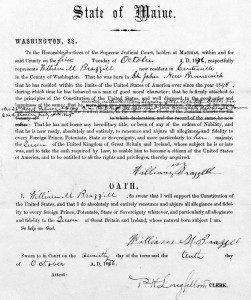 State of Maine.
WASHINGTON, SS.
To the Honorable Justices of the Supreme Judicial Court, holden at MACHIAS, within and for
said County on the first Tuesday of October A. D. 18 respectfully
represents William M Frazzell now resident in
in the County of Washington. That he was born in St John New Brunswick
that he has resided within the limits of the United States of America ever since the year
during which time he has behaved as a man of good moral character; that he is firmly attached to the
principles of the Constitution of the United States, and well disposed to the good order and
happiness of the same;
to which declaration, and the record of the same, he now
refers: That he has not borne any hereditary title, or been of any of the orders of Nobility, and
that he is now ready, absolutely and entirely, to renounce and abjure all allegiance and fidelity to
every Foreign Prince, Potentate, State or Sovereignty, and more particularly to her majesty,
the Queen of the United Kingdom of Great Britain and Ireland, whose subject he is or was
and, to take the oath required by Law, to enable him to become a citizen of the United States of
America, and to be entitled to all the rights and privileges, thereby acquired.
William Frazzell
OATH.
I, William M Frazzell do swear that I will support the Constitution
of the United States, and that I do absolutely and entirely renounce and abjure all allegiance and fidelity
to every foreign Prince, Potentate, State or Sovereignty whatever, and particularly all allegiance
and fidelity to the Queen of Great Britain and Ireland, whose natural born subject I am.
So help me God.
William M Frazzell
Sworn to in Court on the seventh day of the term and the tenth day
of October A. D. 18
Attest:
P. H. Longfellow CLERK.